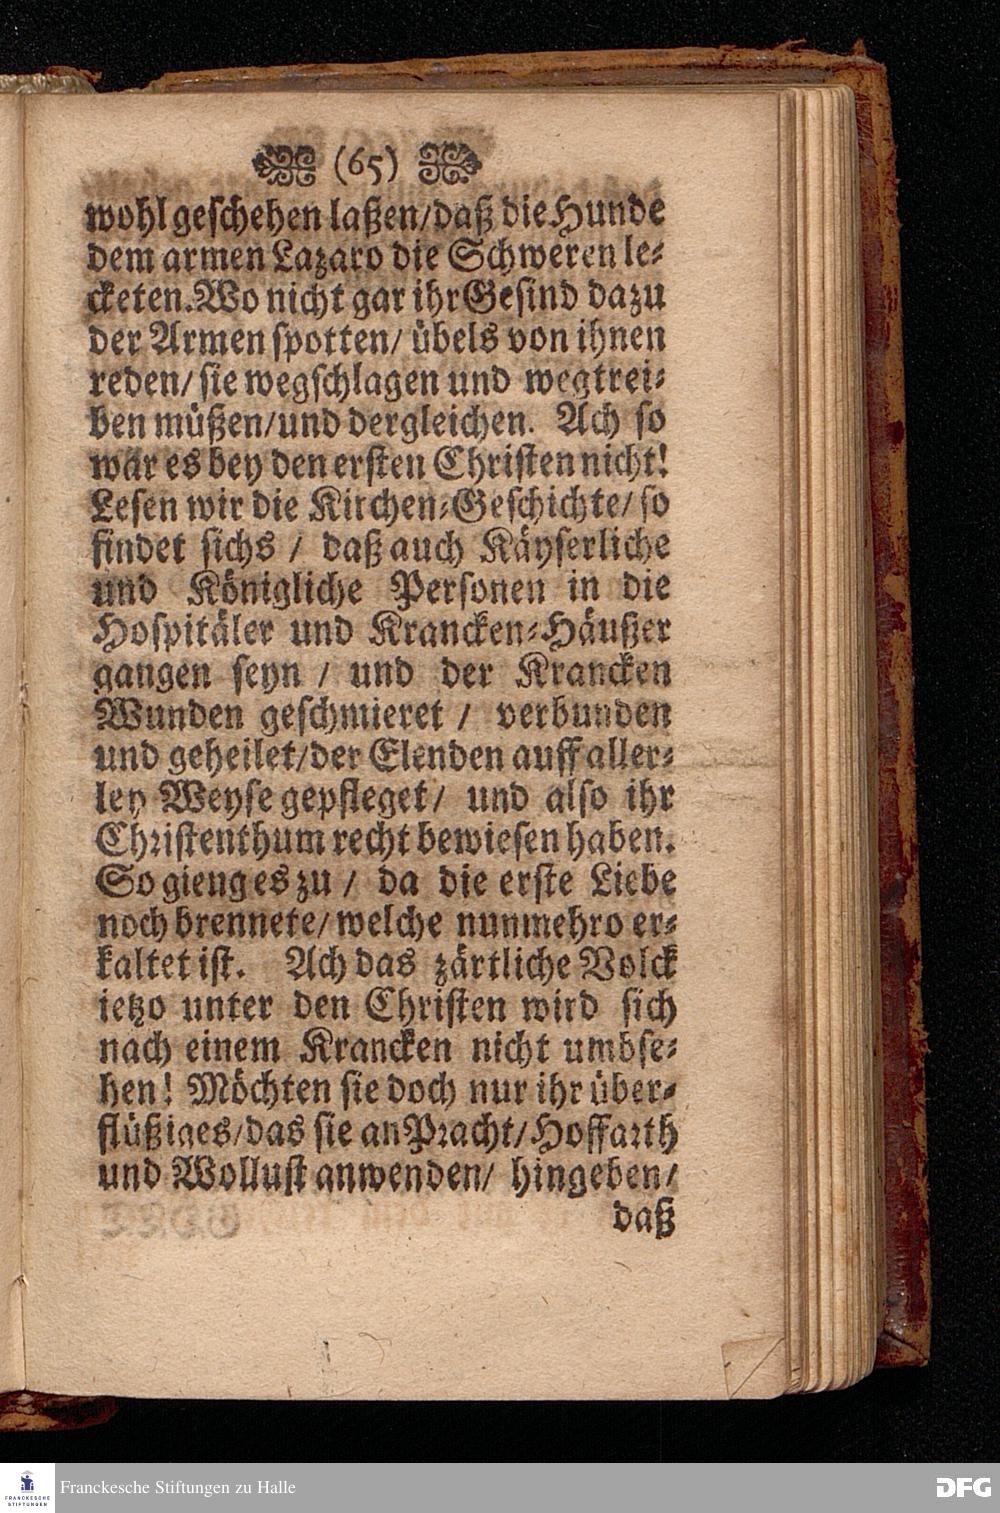 (65)
wohl geschehen laßen/daß die Hunde
dem armen Lazaro die Schweren le-
cketen. Wo nicht gar ihr Gesind dazu
der Armen spotten/ übels von ihnen
reden/ sie wegschlagen und wegtrei-
ben müßen/und dergleichen. Ach so
war es bey den ersten Christen nicht!
Lesen wir die Kirchen-Geschichte/ so
findet sichs / daß auch Käyserliche
und Königliche Personen in die
Hospitäler und Krancken-Häußer
gangen seyn / und der Krancken
Wunden geschmieret / verbunden
und geheilet/der Elenden auff aller-
ley Weyse gepfleget/ und also ihr
Christenthum recht bewiesen haben.
So gieng es zu / da die erste Liebe
noch brennete/ welche nunmehro er-
kaltet ist. Ach das zärtliche Volck
ietzo unter den Christen wird sich
nach einem Krancken nicht umbse-
hen! Möchten sie doch nur ihr über-
flüßiges/das sie an Pracht/Hoffarth
und Wollust anwenden/ hingeben/
daß
FRANCKESCHE
STIFTUNGEN
Franckesche Stiftungen zu Halle
DFG